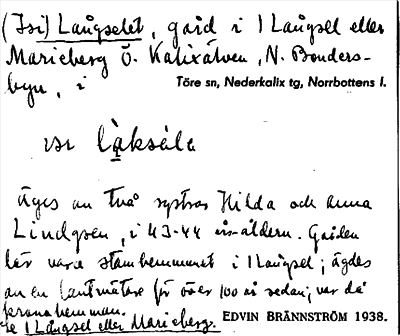 (Isi) Långselet, gård i 1 Långsel eller
Marieberg Ö. Kalixälven, N. Bonders-
byn, i Töre sn, Nederkalix tg, Norrbottens l.
låksële
Äges av två systrar Hilda och Anna
Lindgren, i 43-44 års-åldern. Gården
lär vara stamhemmanet i 1 Långsel; ägdes
av en lantmätare för över 100 år sedan; var då
kronohemman.
se 1 Långsel eller Marieberg. EDVIN BRÄNNSTRÖM 1938.